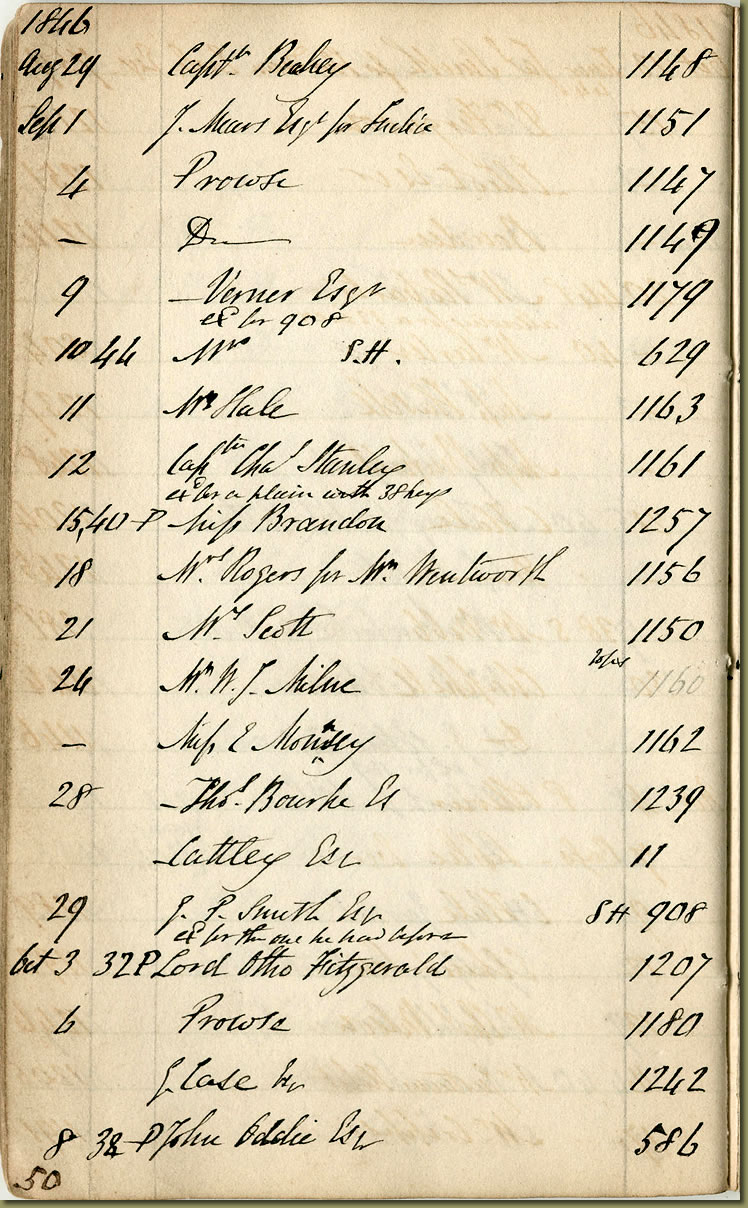 1846
Aug 29 Captn. Beakey 1148
Sep 1 J. Mears Esqr for Justice 1151
4 Prowse 1147
— Do 1149
9 — Verner Esqr 1179
exd for 908
10 44 Mrs S.H. 629
11 Mr Hale 1163
12 Captn Chas Stanley 1161
exd for a plain with 38 keys
15, 40 P Miss Brandon 1257
18 Mrs Rogers for Mr. Wentworth 1156
21 Mr Scott 1150
24 Mr. W. J. Milne 1160
— Miss E Mounsey 1162
28 — Thos. Bourke Es 1239
Cattley Esqr 11
29 J. P. Smith Esqr SH 908
exd for the one he had before
Oct 3 32 P Lord Otho Fitzgerald 1207
6 Prowse 1180
J Case Esqr 1242
8 P John Oddie Esqr 586
50